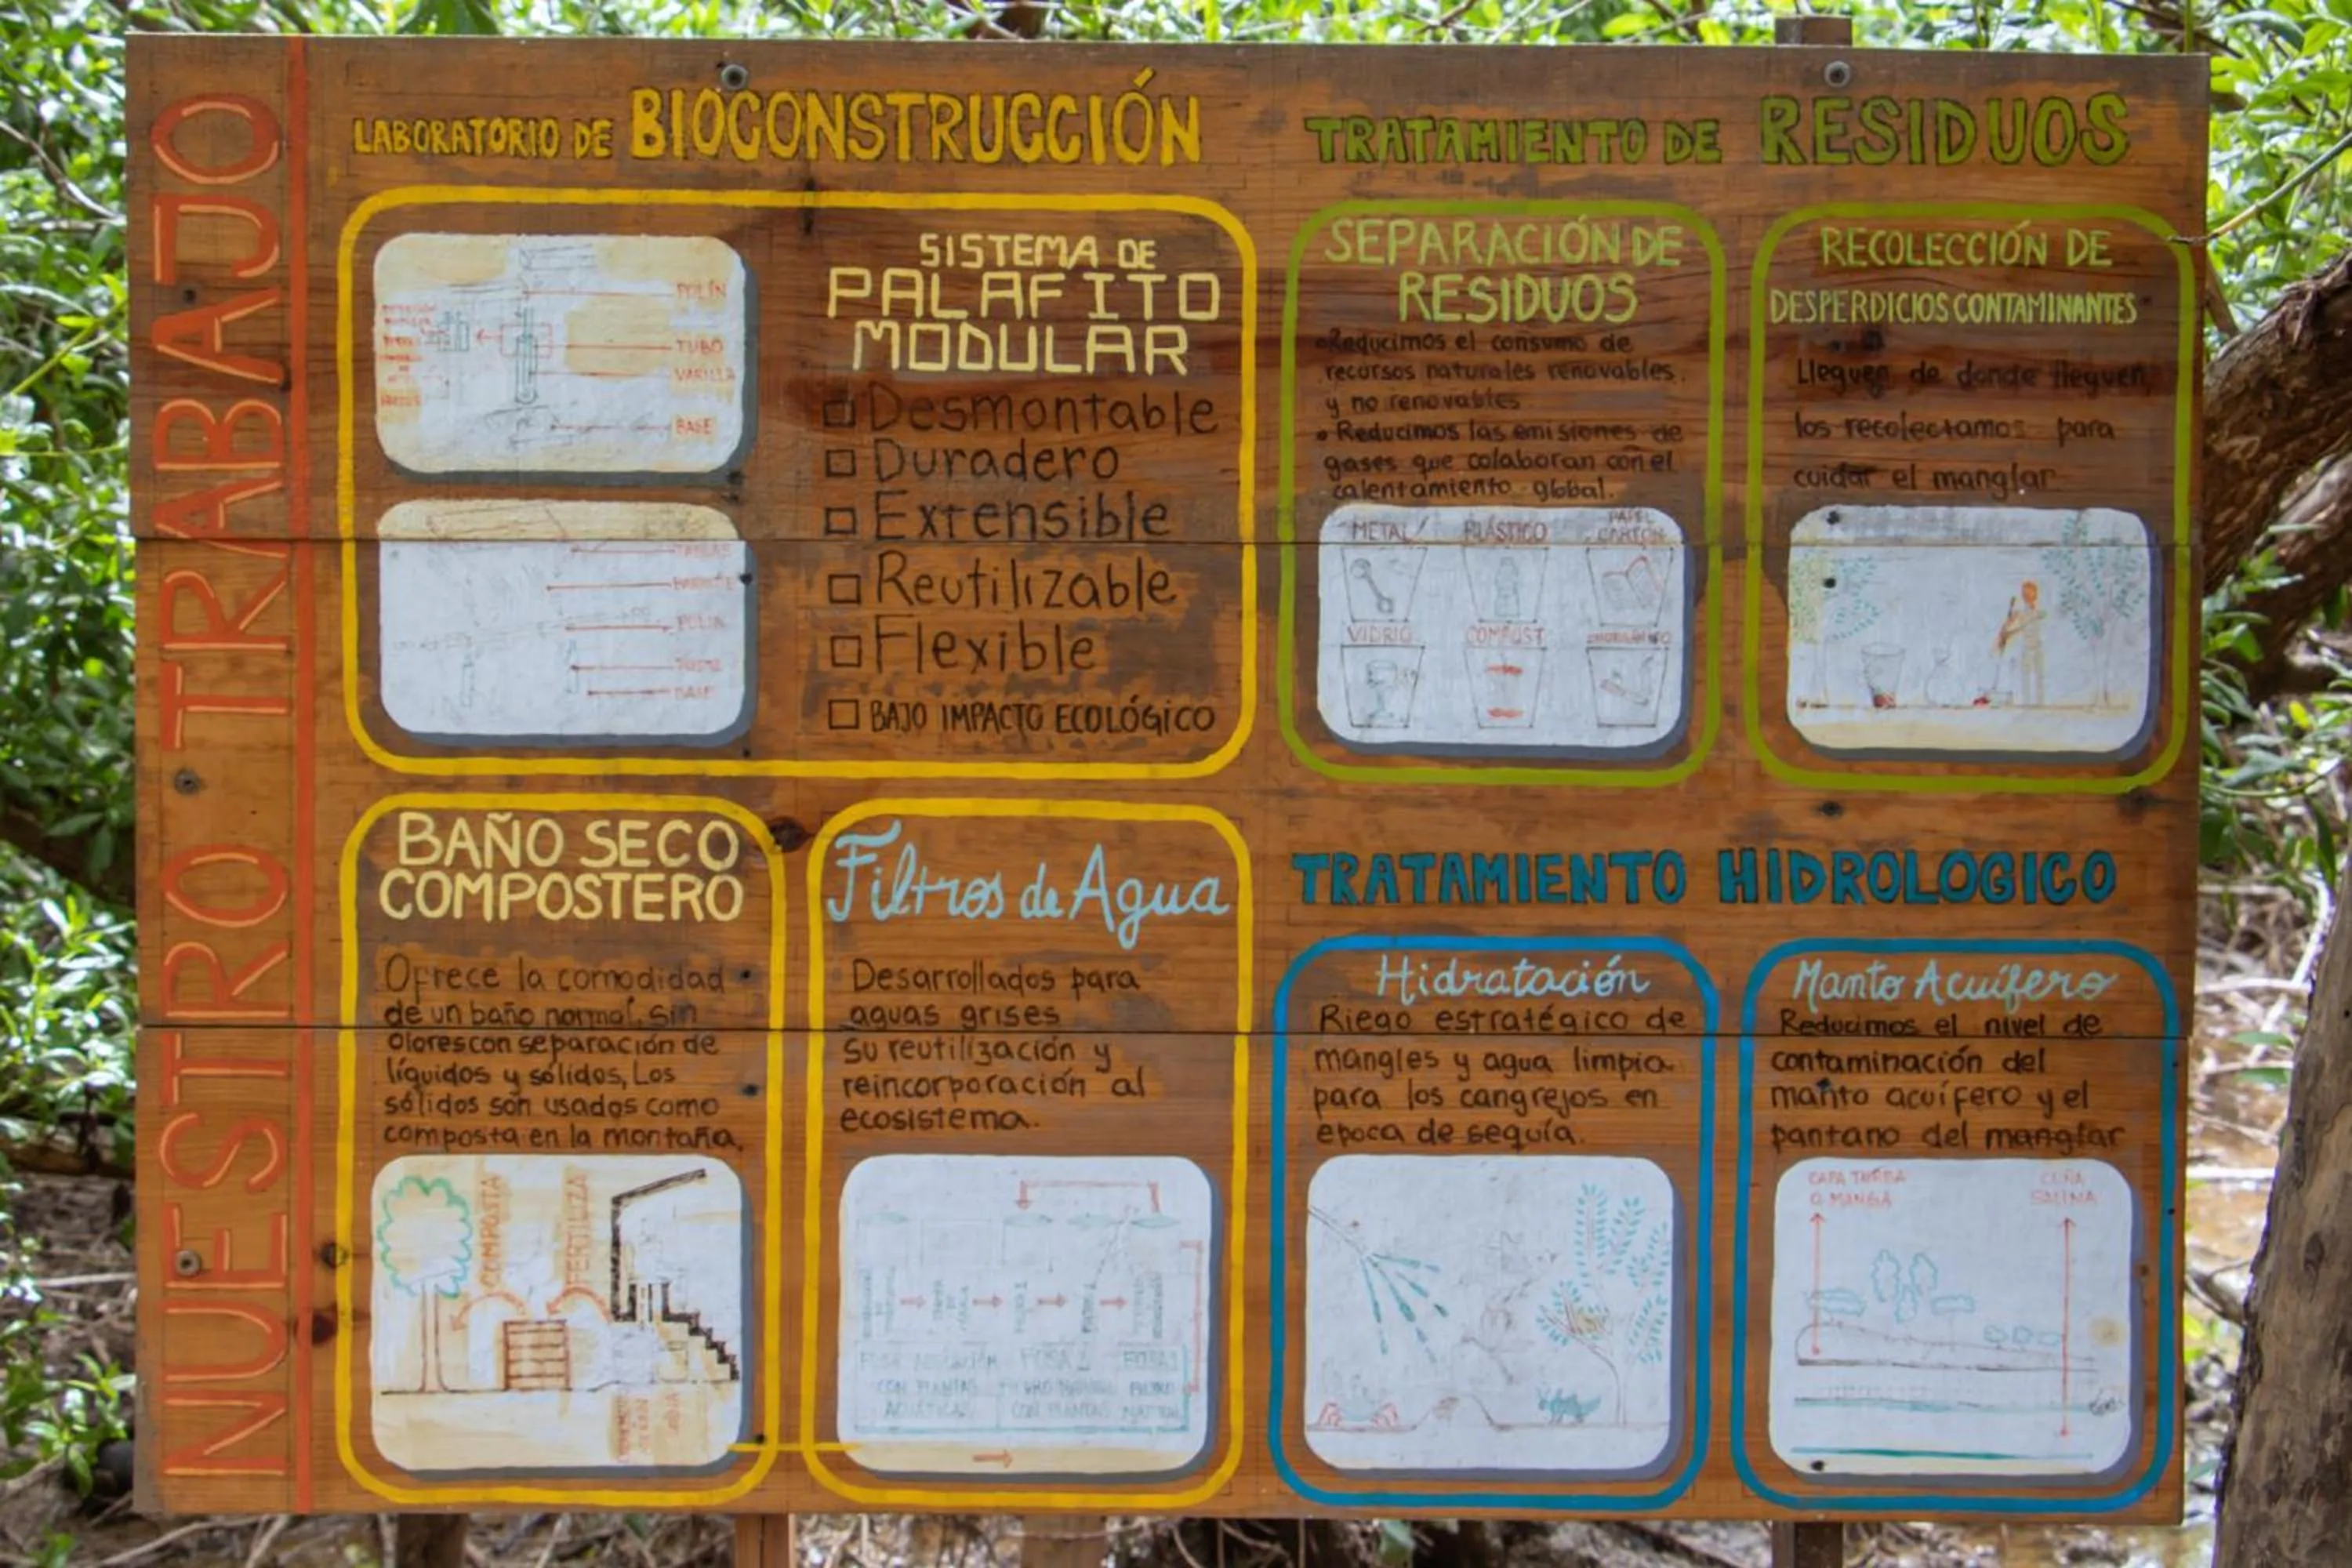 NUESTRO TRABAJO
LABORATORIO DE BIOCONSTRUCCIÓN
POLÍN
TUBO
VARILLA
BASE
SISTEMA DE
PALAFITO
MODULAR
Desmontable
Duradero
Extensible
Reutilizable
Flexible
BAJO IMPACTO ECOLÓGICO
BASE
BAÑO SECO
COMPOSTERO
Ofrece la comodidad
de un baño normal, sin
olores con separación de
líquidos y sólidos, Los
sólidos son usados como
composta en la montaña.
COMPOSTA
FERTILIZA
Filtros de Agua
Desarrollados para
aguas grises
su reutilización y
reincorporación al
ecosistema.
FOSA 2
CON PLANTAS
CON PLANTAS
ACUÁTICAS
TRATAMIENTO DE RESIDUOS
SEPARACIÓN DE
RESIDUOS
• Reducimos el consumo de
recursos naturales renovables
y no renovables
• Reducimos las emisiones de
gases que colaboran con el
calentamiento global.
METAL
PLÁSTICO
PAPEL
CARTÓN
VIDRIO
COMPOST
RECOLECCIÓN DE
DESPERDICIOS CONTAMINANTES
Lleguen de donde lleguen,
los recolectamos para
cuidar el manglar
TRATAMIENTO HIDROLOGICO
Hidratación
Riego estratégico de
mangles y agua limpia
para los cangrejos en
epoca de sequía.
Manto Acuífero
Reducimos el nivel de
contaminación del
manto acuífero y el
pantano del manglar
CAPA TURBA
O MANGA
CUÑA
SALINA